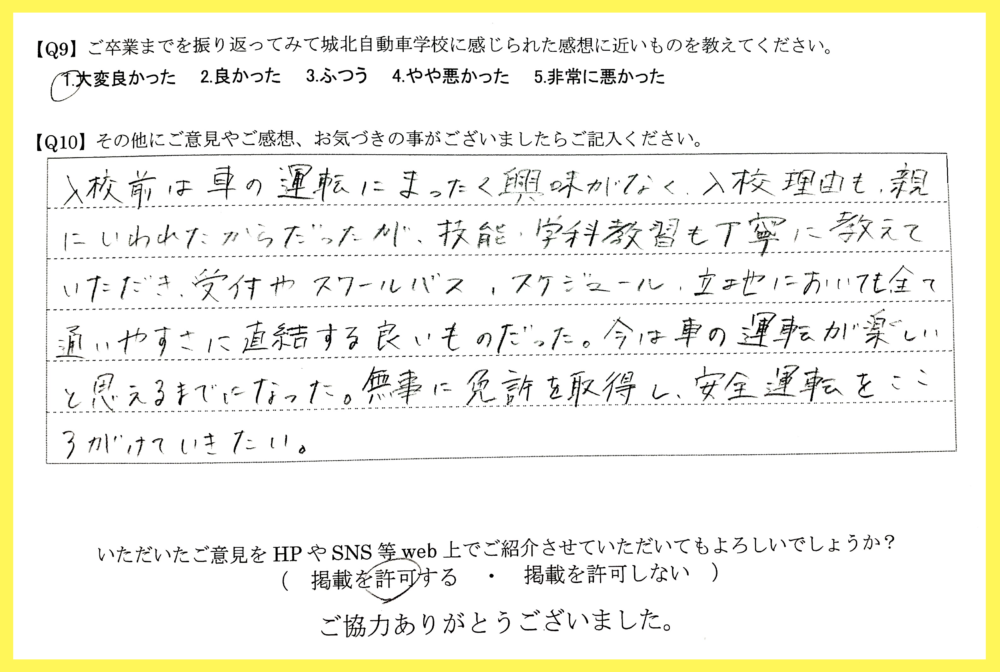 【Q9】ご卒業までを振り返ってみて城北自動車学校に感じられた感想に近いものを教えてください。
1.大変良かった　2.良かった　3.ふつう　4.やや悪かった　5.非常に悪かった
【Q10】その他にご意見やご感想、お気づきの事がございましたらご記入ください。
入校前は車の運転にまったく興味がなく、入校理由も、親
にいわれたからだったが、技能・学科教習も丁寧に教えて
いただき、受付やスクールバス、スケジュール、立地においても全て
通いやすさに直結する良いものだった。今は車の運転が楽しい
と思えるまでになった。無事に免許を取得し、安全運転をここ
ろがけていきたい。
いただいたご意見をHPやSNS等web上でご紹介させていただいてもよろしいでしょうか？
（　掲載を許可する　・　掲載を許可しない　）
ご協力ありがとうございました。